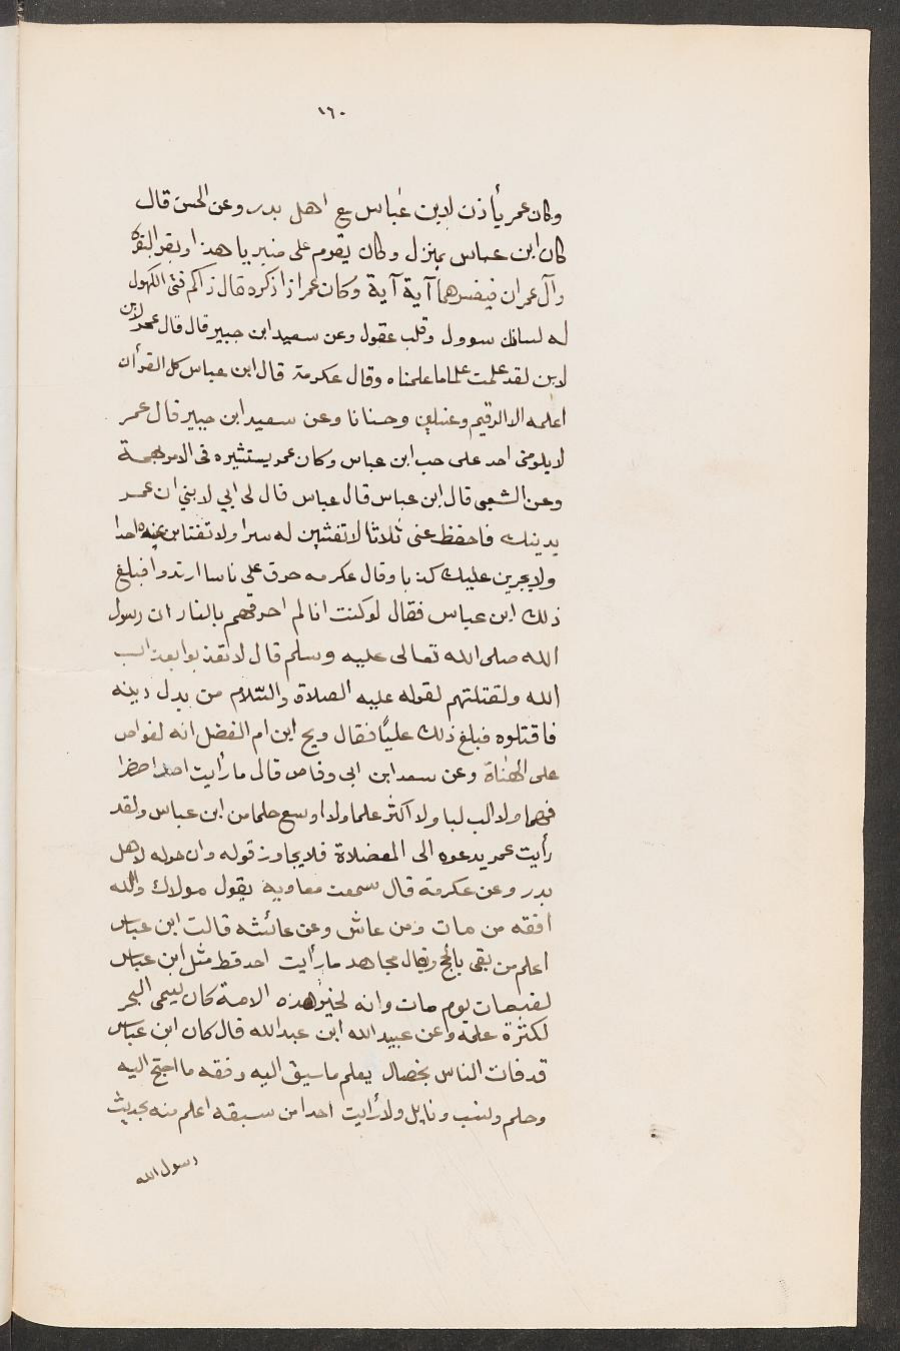 ١٦٠
وكان عمر يأذن لابن عباس مع اهل بدر وعن الحسن قال
كان ابن عباس بمنزل وكان يقوم على منبرياهذا ويقرا البقرة
وآل عمران فيفسرهما آية آية وكان عمر اذا ذكره قال ذاكم فتى الكهول
له لسان سوول وقلب عقول وعن سعيد ابن جبير قال قال عمر لابن
لابن لقد علمت علما ما علمناه وقال عكرمة قال ابن عباس كل القرأن
اعلمه الا الرقيم وغسلين وحنانا وعن سعيد ابن جبير قال عمر
لايلومنى احد على حب ابن عباس وكان عمر يستشيره فى الامر
وعن الشعبى قال ابن عباس قال عباس قال لى ابي لا بني ان عمر
يدينك فاحفظ عنى ثلاثا لا تفشين له سرا ولا تغتابن عنده احدا
ولايجربن عليك كذبا وقال عكرمه حرق على ناسا ارتدوا فبلغ
ذلك ابن عباس فقال لوكنت انا لم احرقهم بالنار ان رسول
الله صلى الله تعالى عليه وسلم قال لا تعذبوا بعذاب
الله ولقتلتهم لقوله عليه الصلاة والسلام من بدل دينه
فاقتلوه فبلغ ذلك عليًا فقال ويح ابن ام الفضل انه لغواص
على الهناة وعن سعد ابن ابى وقاص قال ما رأيت احدا احضرا
فهما ولا الب لبا ولا اكثر علما ولا اوسع حلما من ابن عباس ولقد
رأيت عمر يدعوه الى المعضلاة فلا يجاوز قوله وان حوله لاهل
بدر وعن عكرمة قال سمعت معاوية يقول مولاك والله
افقه من مات ومن عاش وعن عائشه قالت ابن عباس
اعلم من بقى بالحج وقال مجاهد ما رأيت احد قط مثل ابن عباس
لقد مات يوم مات وانه لحبر هذه الامة كان يسمى البحر
لكثرة علمه وعن عبيد الله ابن عبد الله قال كان ابن عباس
قد فات الناس بخصال بعلم ما سبق اليه وفقه ما احتج اليه
وحلم ونسب ونايل ولا رأيت احدا من سبقه اعلم منه بحديث
رسول الله